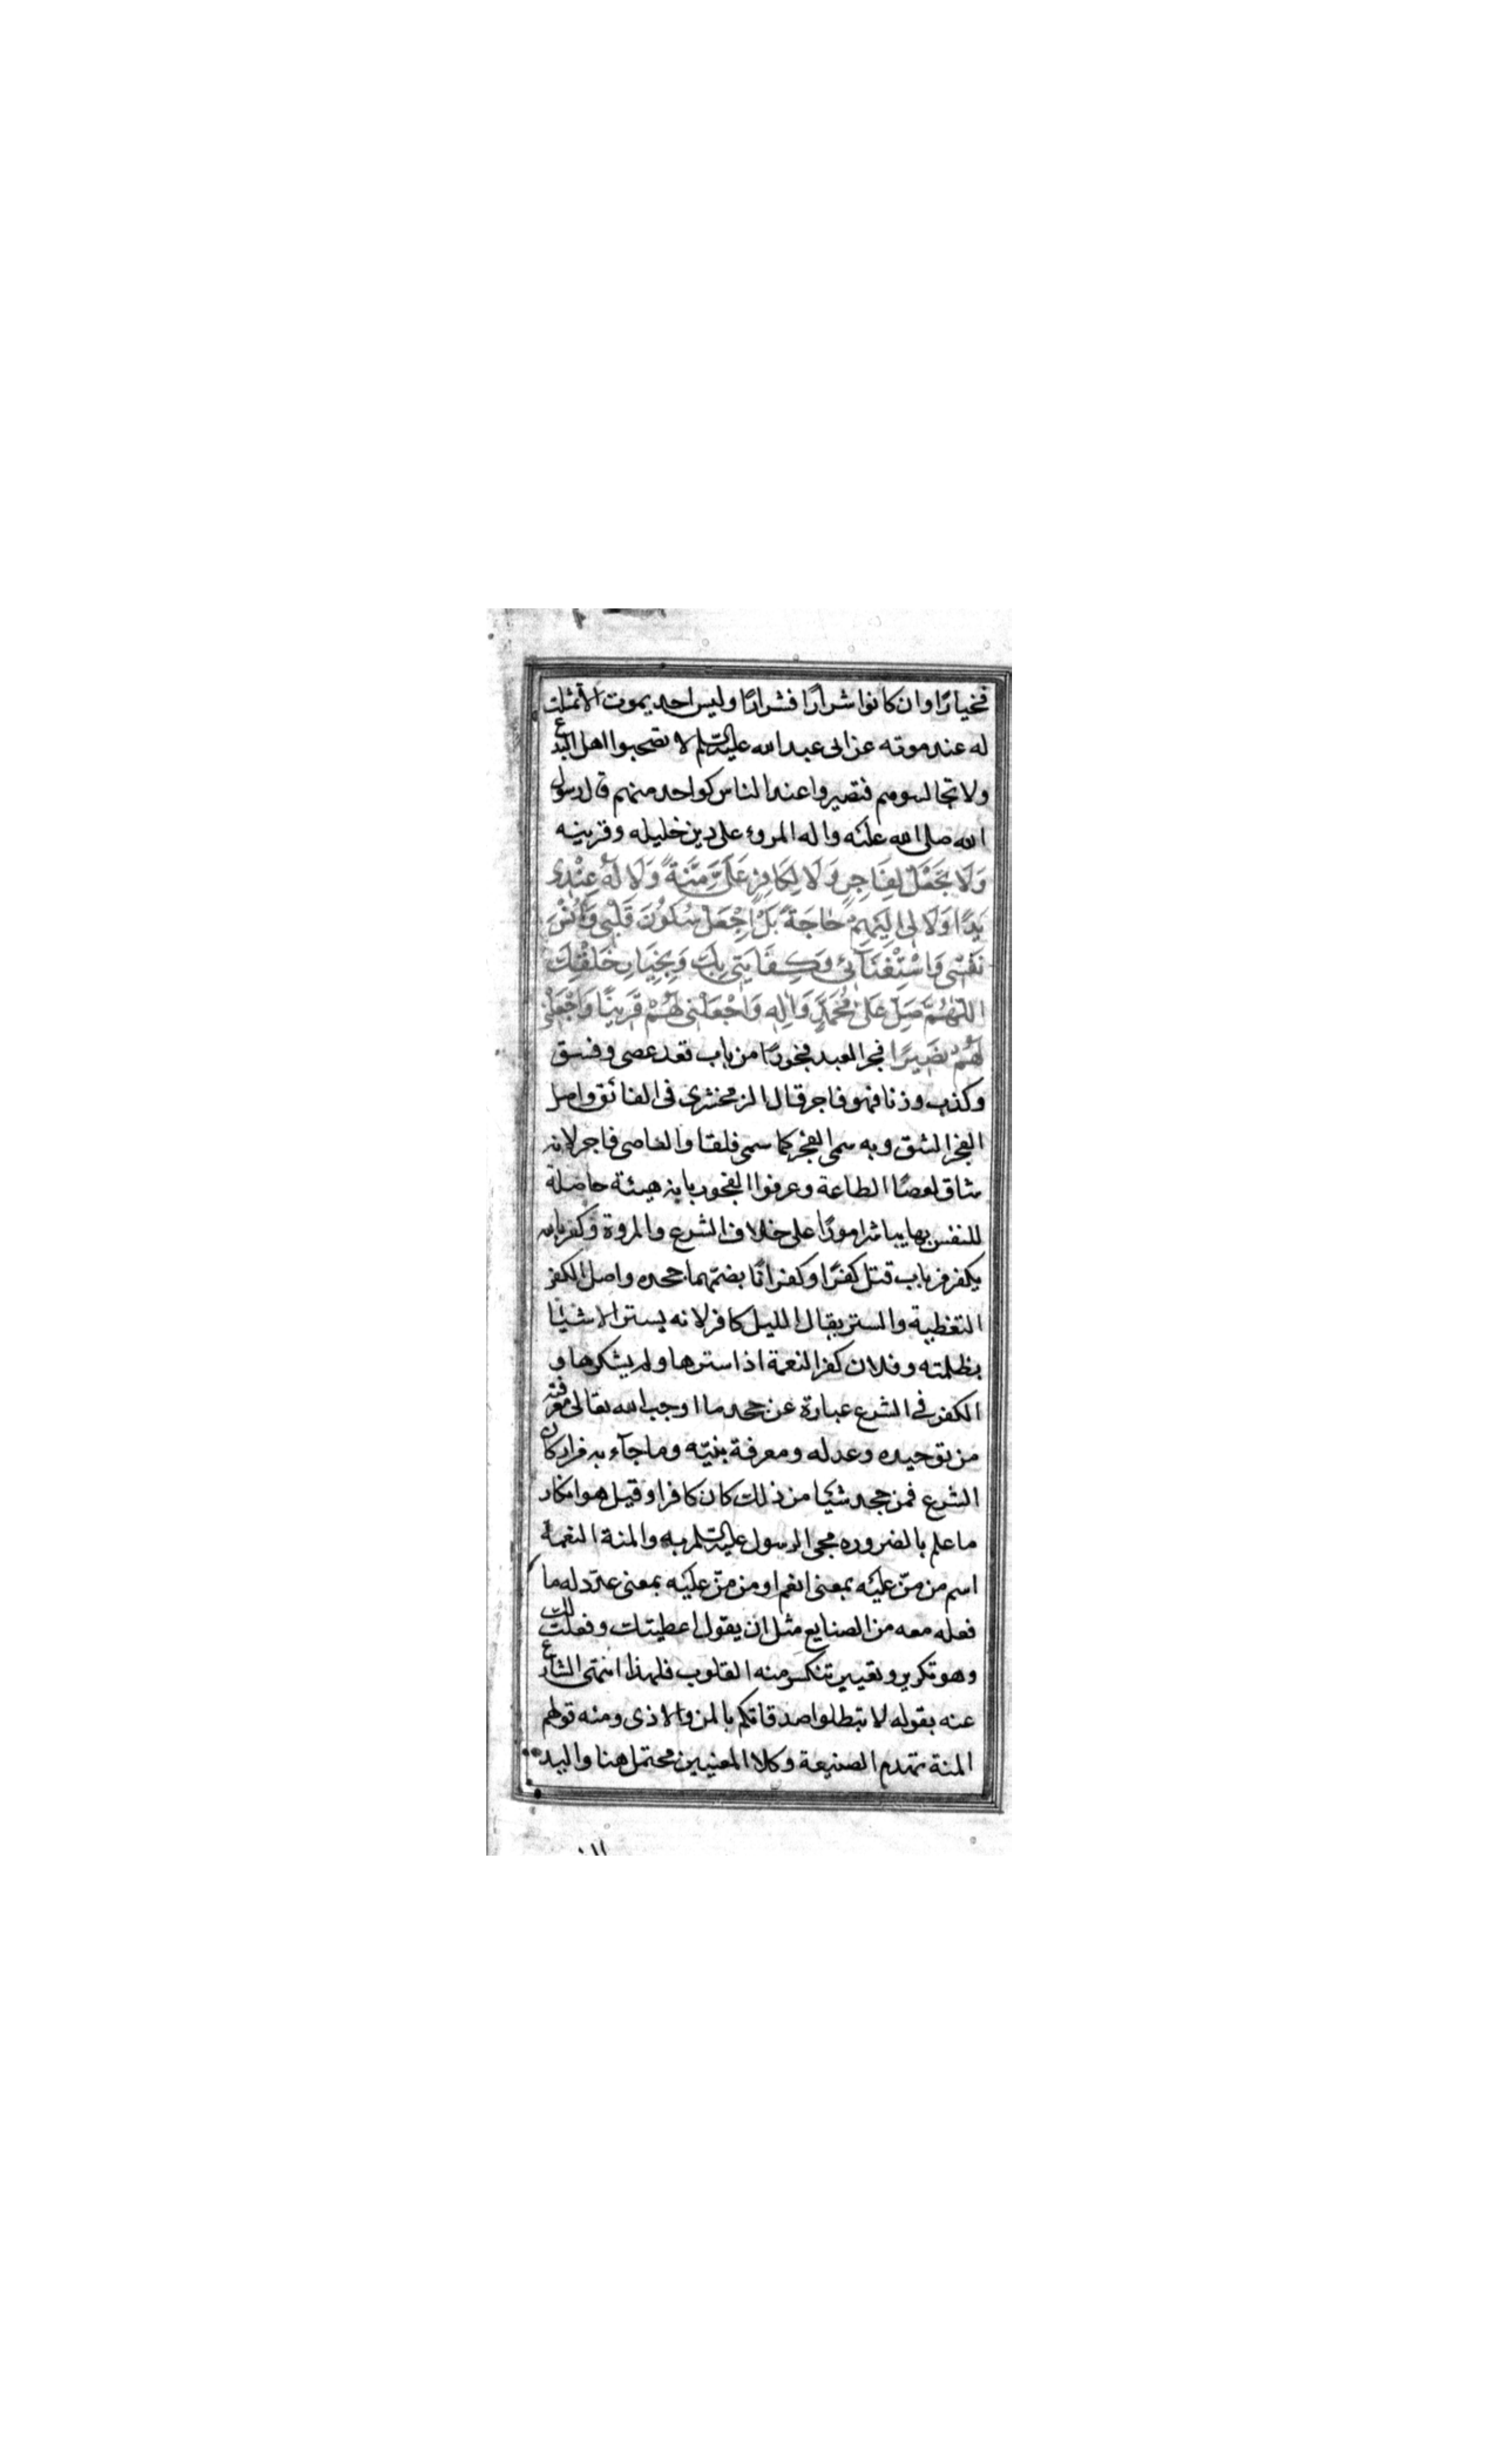 فخيارًا وان كانوا شرارًا فشرارًا وليس احد يموت الا تمثلت
له عند موته عن ابى عبد الله عليه السلم لا تصحبوا اهل البدع
ولا تجالسوهم فتصيروا عند الناس كواحد منهم قال رسول
الله صلى الله عليه واله المرء على دين خليله وقرينه
وَلَا تَجْعَلْ لِفَاجِرٍ وَلَا لِكَافِرٍ عَلَىَّ مِنَّةً وَلَا لَهُ عِنْدِى
يَدًا وَلَا بِى اِلَيْهِمْ حَاجَةً بَلْ اِجْعَلْ سُكُونَ قَلْبِى وَاُنْسَ
نَفْسِى وَاسْتِغْنَآئِى وَكِفَايَتِى بِكَ وَبِخِيَارِ خَلْقِكَ
اللّٰهُمَّ صَلِّ عَلَى مُحَمَّدٍ وَاٰلِهِ وَاجْعَلْنِى لَهُمْ قَرِينًا وَاجْعَلْنِى
لَهُمْ نَصِيرًا فجر العبد فجورًا من باب قعد عصى وفسق
وكذب وزنا فهو فاجر قال الزمخشرى فى الفائق واصل
الفجر الشق وبه سمى الفجر كما سمى فلقا والعاصى فاجر لانه
شاق لعصا الطاعة وعرفوا الفجور بانه هيئة حاصلة
للنفس بها يباشر امورًا على خلاف الشرع والمروة وكفر بالله
يكفر من باب قتل كفرًا وكفرانًا بضمهما جحده واصل الكفر
التغطية والستر يقال لليل كافر لانه يستر الاشيا
بظلمته وفلان كفر النعمة اذا سترها ولم يشكرها و
الكفر فى الشرع عبارة عن جحد ما اوجب الله تعالى معرفته
من توحيده وعدله ومعرفة بنيّه وما جآء به من اركان
الشرع فمن جحد شيئا من ذلك كان كافرا وقيل هو انكار
ما علم بالضروره مجى الرسول عليه السلم به والمنة النعمة
اسم من منّ عليه بمعنى انعم او من منّ عليه بمعنى عدّد له ما
فعله معه من الصنايع مثل ان يقول اعطيتك وفعلت لك
وهو تكرير وتعيير تنكسر منه القلوب فلهذا انتهى الشارع
عنه بقوله لا تبطلوا صدقاتكم بالمن والاذى ومنه قولهم
المنة تهدم الصنيعة وكلا المعنيين محتمل هنا واليد